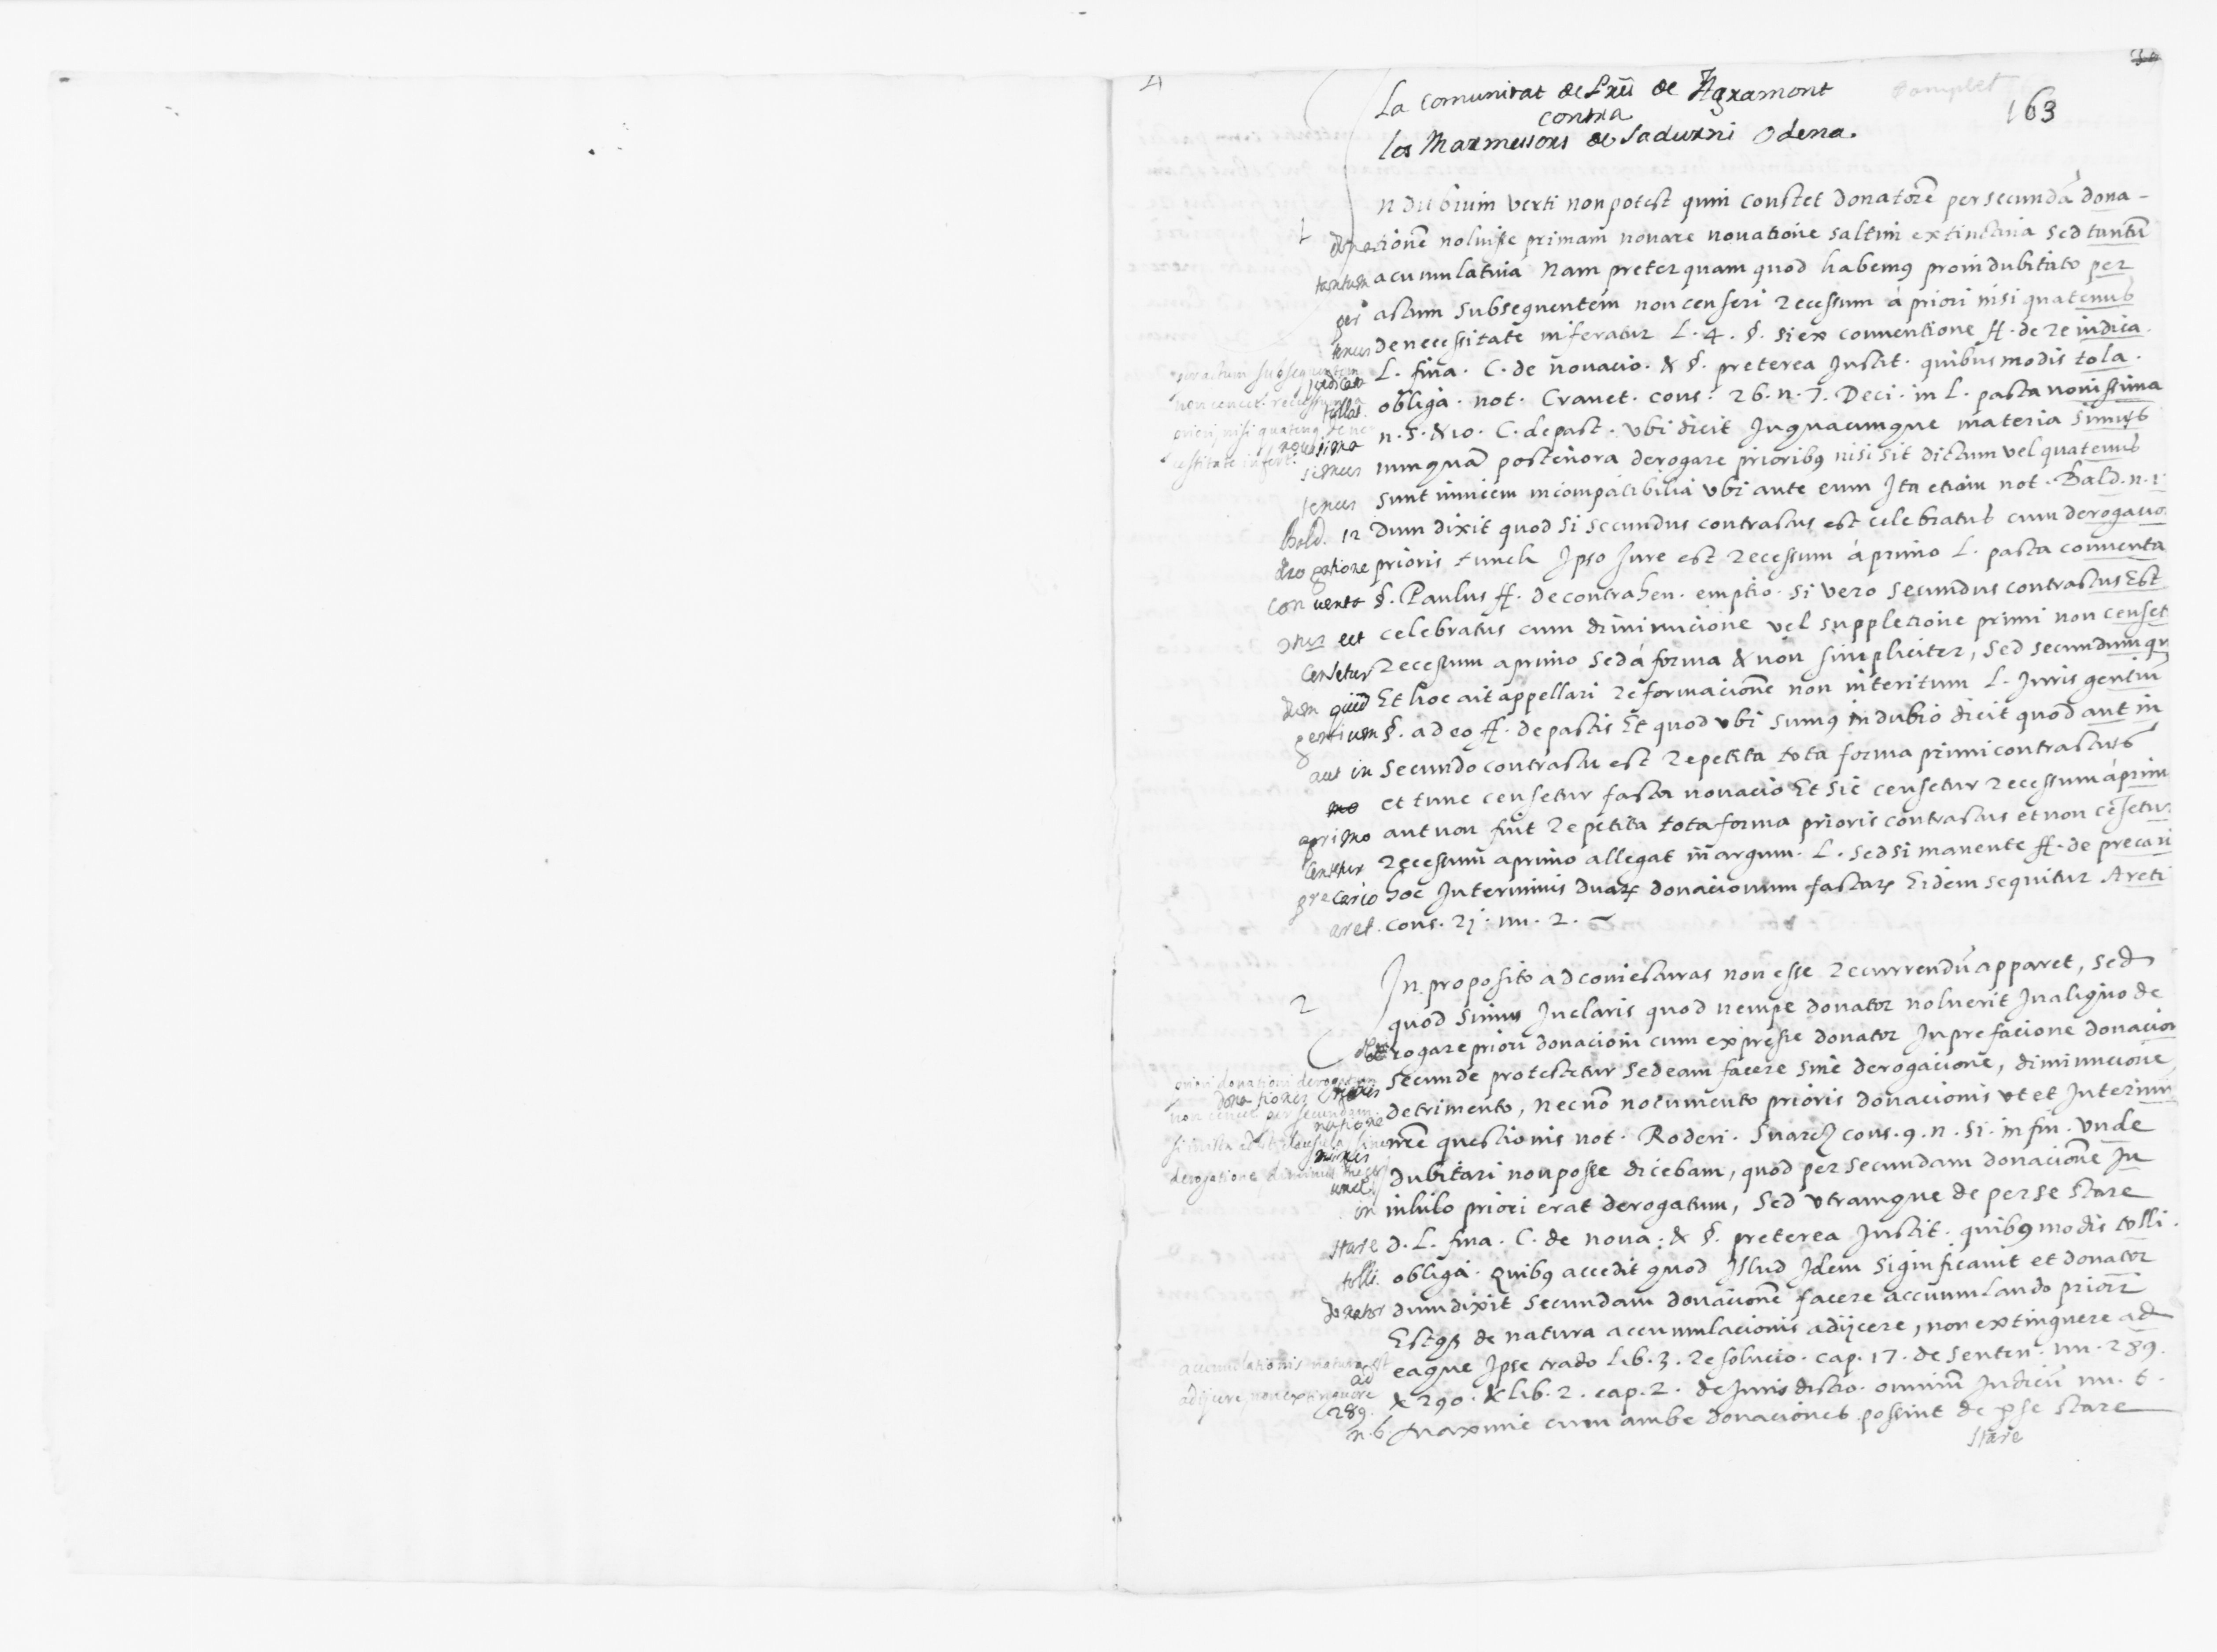 La Comunitat de Preũ de Agramont
contra
los Marmessors de Sadurni Odena.
163
complet
1
n dubium verti non potest quin constet donatorẽ per secundã dona-
donationẽ noluisse primam novare novatione saltim extinctiva sed tantũ
tantum acumulativa Nam preterquam quod habemꝯ pro indubitato per
per actum subsequentem non censeri recessum a priori nisi quatenus
tenus de necessitate inferatur L. 4. §. si ex conventione ff. de re iudica.
judicata L. fina. C. de novacio. & §. preterea Instit. quibus modis tola.
tollat. obliga. not. Cravet. cons. 26. n. 7. Deci. in L. pacta novissima
novissima n. 5. & 10. C. de pact. ubi dicit In quacumque materia simus
simus numquã posteriora derogare prioribꝯ nisi sit dictum vel quatenus
tenus sunt invicem incompatibilia ubi ante eum Ita etiam not. Bald. n. 1
Bald. 12 Dum dixit quod si secundus contractus est celebratus cum derogacio
derogatione prioris tunch Ipso Iure est recessum á primo L. pacta conventa
conventa §. Paulus ff. de contrahen. emptio. si vero secundus contractus Est
ctus est celebratus cum diminucione vel suppletione primi non censet
censetur recessum a primo sed á forma & non simpliciter, sed secundum qu
dum quid Et hoc ait appellari reformacionẽ non interitum L. Iuris gentiũ
gentium §. adeo ff. de pactis Et quod ubi sumꝯ in dubio dicit quod aut in
aut in secundo contractu est repetita tota forma primi contractus
et tunc censetur facta novacio Et sic censetur recessum á prim
a primo aut non fuit repetita tota forma prioris contractus et non cẽsetur
censetur recessum a primo allegat in argum. L. sed si manente ff. de precari
precario hoc In terminis duarꝝ donacionum factarꝝ Eidem sequitur Areti
aret. cons. 21. nu. 2.
per actum subsequentem
non censet. recessum a
priori, nisi quatenꝯ de ne
cessitate infert.
2
In proposito ad coniecturas non esse recurrendũ apparet, sed
quod simus In claris quod nempe donator noluerit In aliquo de
derogare priori donacioni cum expresse donator In prefacione donacion
secunde protestetur sed eam facere sine derogacione, diminucione,
detrimento, necnõ nocumento prioris donacionis ut et In termin
nr̃e questionis not. Roderi. Suarez cons. 9. n. 51. in fin. Unde
dubitari non posse dicebam, quod per secundam donacionẽ In
in nihilo priori erat derogatum, sed utramque de per se stare
stare d. L. fina. C. de nova: & §. preterea Instit. quibꝯ modis tolli.
tolli. obliga. Quibꝯ accedit quod Illud Idem significavit et donator
donator dum dixit secundam donacionẽ facere accumulando priori
Estqꝫ de natura accumulacionis adijcere, non extinguere ad
ad eaque Ipse trado Lib. 3. resolucio. cap. 17. de senten. nu. 289.
289. & 290. & lib. 2. cap. 2. de Iurisdictio. omniũ Iudicũ nu. 6.
n. 6. Maxime cum ambe donaciones possint de ꝑ se stare
stare
priori donationi derogatum
non censet. per secundam
derogatione
acumulationis natura est
adijcere, non extinguere